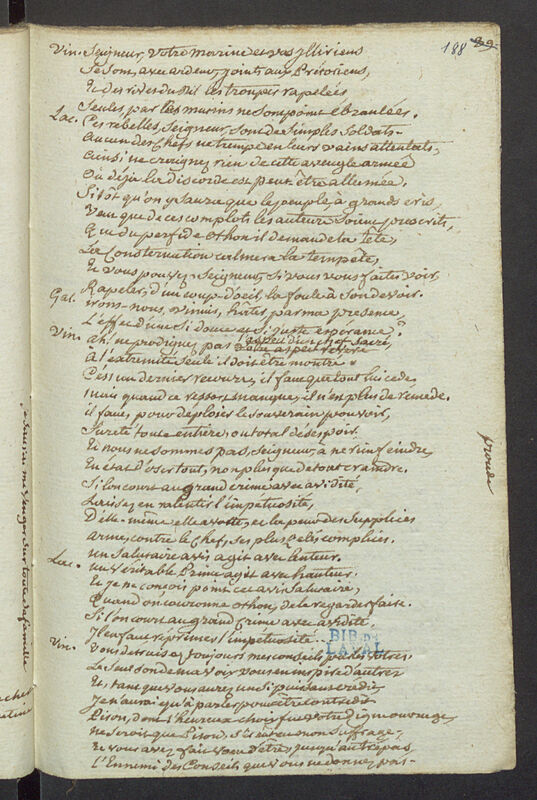 188 89
Vin. Seigneur, Votre marine et vos Illiriens
Se sont, avec ardeur, joints aux Prétoriens,
Et des rives du Nil les troupes rapelées
Seules, par les mutins ne sont point ébranlées.
Lac. Ces rebelles, Seigneur, sont de simples soldats.
Aucun des Chefs ne trempe en leurs vains attentats,
Ainsi ne craignez rien de cette aveugle armée
Où déja la discorde est peut-être allumée.
Sitôt qu'on y saura que le peuple à grands cris,
Veut que de ces complots les auteurs soient proscrits,
Que du perfide Othon il demande la tête,
La Consternation calmera la tempête,
Et vous pouvez, Seigneur, si vous vous faites voir
Rapeler, d'un coup-d'oeil, la foule à son devoir.
Gal. irons-nous, Vinius, hâter par ma presence,
L'effet d'une si douce et si juste espérance?
Vin. Ah! ne prodiguez pas l'aspect d'un chef sacré,
votre aspect révéré
à l'extrémité seule il doit être montré.
C'est un dernier recours, il faut que tout lui cède,
mais quand ce ressort manque, il n'est plus de remede.
il faut, pour déploier le souverain pouvoir,
Sureté toute entière, ou total désespoir.
Et nous ne sommes pas, Seigneur, à ne rien feindre
En état d'oser tout, non plus que de tout craindre.
Si l'on court au grand crime avec avidité,
Laissez en ralentir l'impétuosité,
D'elle-même elle avorte, et la peur des supplices
arme, contre le Chef, ses plus zélés complices.
un Salutaire avis agit avec lenteur.
Lac. un véritable Prince agit avec hauteur.
Et je ne conçois point cet avis Salutaire,
Quand on couronne Othon, de le regarder faire.
Si l'on court au grand crime avec avidité,
Il en faut réprimer l'impétuosité.
Vin. Vous détruisez toujours mes conseils par les votres.
Le seul son de ma voix vous en inspire d'autres
Et, tant que vous aurez un si puissant crédit
Je n'aurai qu'à parler pour être contredit
Pison, dont l'heureux choix fut votre digne ouvrage,
ne seroit que Pison, s'il eût eu mon suffrage,
Et vous avez fait voeu d'être, jusqu'au trépas
l'Ennemi des Conseils que vous ne donnez pas.
prude
BIB. DE
LAVAL
me venger sur toute sa famille